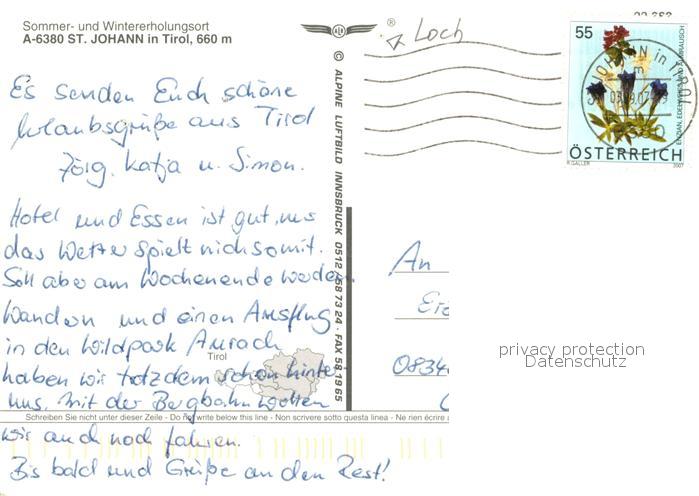 Sommer- und Wintererholungsort
A-6380 ST. JOHANN in Tirol, 660 m
®
Loch
55
ENZIAN, EDELWEISS UND ALMRAUSCH
ÖSTERREICH
R.GALLER 2007
JOHANN in TIROL
Es senden Euch schöne
Urlaubsgrüße aus Tirol
Jörg, Katja u. Simon.
Hotel und Essen ist gut, nus
das Wetter spielt nich so mit.
Soll aber am Wochenende werden.
Wandern und einen Ausflug
in den Wildpark Aurach
haben wir trotzdem schon hinter
uns. Mit der Bergbahn wollen
wir auch noch fahren.
Bis bald und Grüße an den Rest!
Tirol
© ALPINE LUFTBILD INNSBRUCK 0512 / 58 73 24 · FAX 58 29 65
An
0834
privacy protection
Datenschutz
Schreiben Sie nicht unter dieser Zeile - Do not write below this line - Non scrivere sotto questa linea - Ne rien écrire